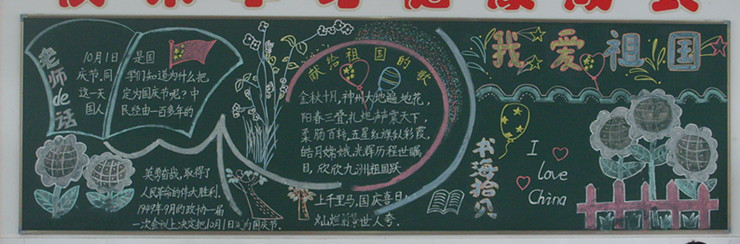 老师
de话
10月1日是国
庆节,同学们知道为什么把
这一天定为国庆节呢?中
国人民经由一百多年的
英勇奋战,取得了
人民革命的伟大胜利.
1949年9月的政协一届
一次会议上决定把10月1日定为国庆节.
献给祖国的歌
金秋十月,神州大地遍地花,
阳春三叠,礼炮声震天下,
柔肠百转,五星红旗纵彩霞,
皓月嫦娥,光辉历程世瞩
目,欣欣九洲祖国跃
上千里马,国庆喜日,
灿烂 世人夸.
书海拾贝
我爱祖国
I
love
China